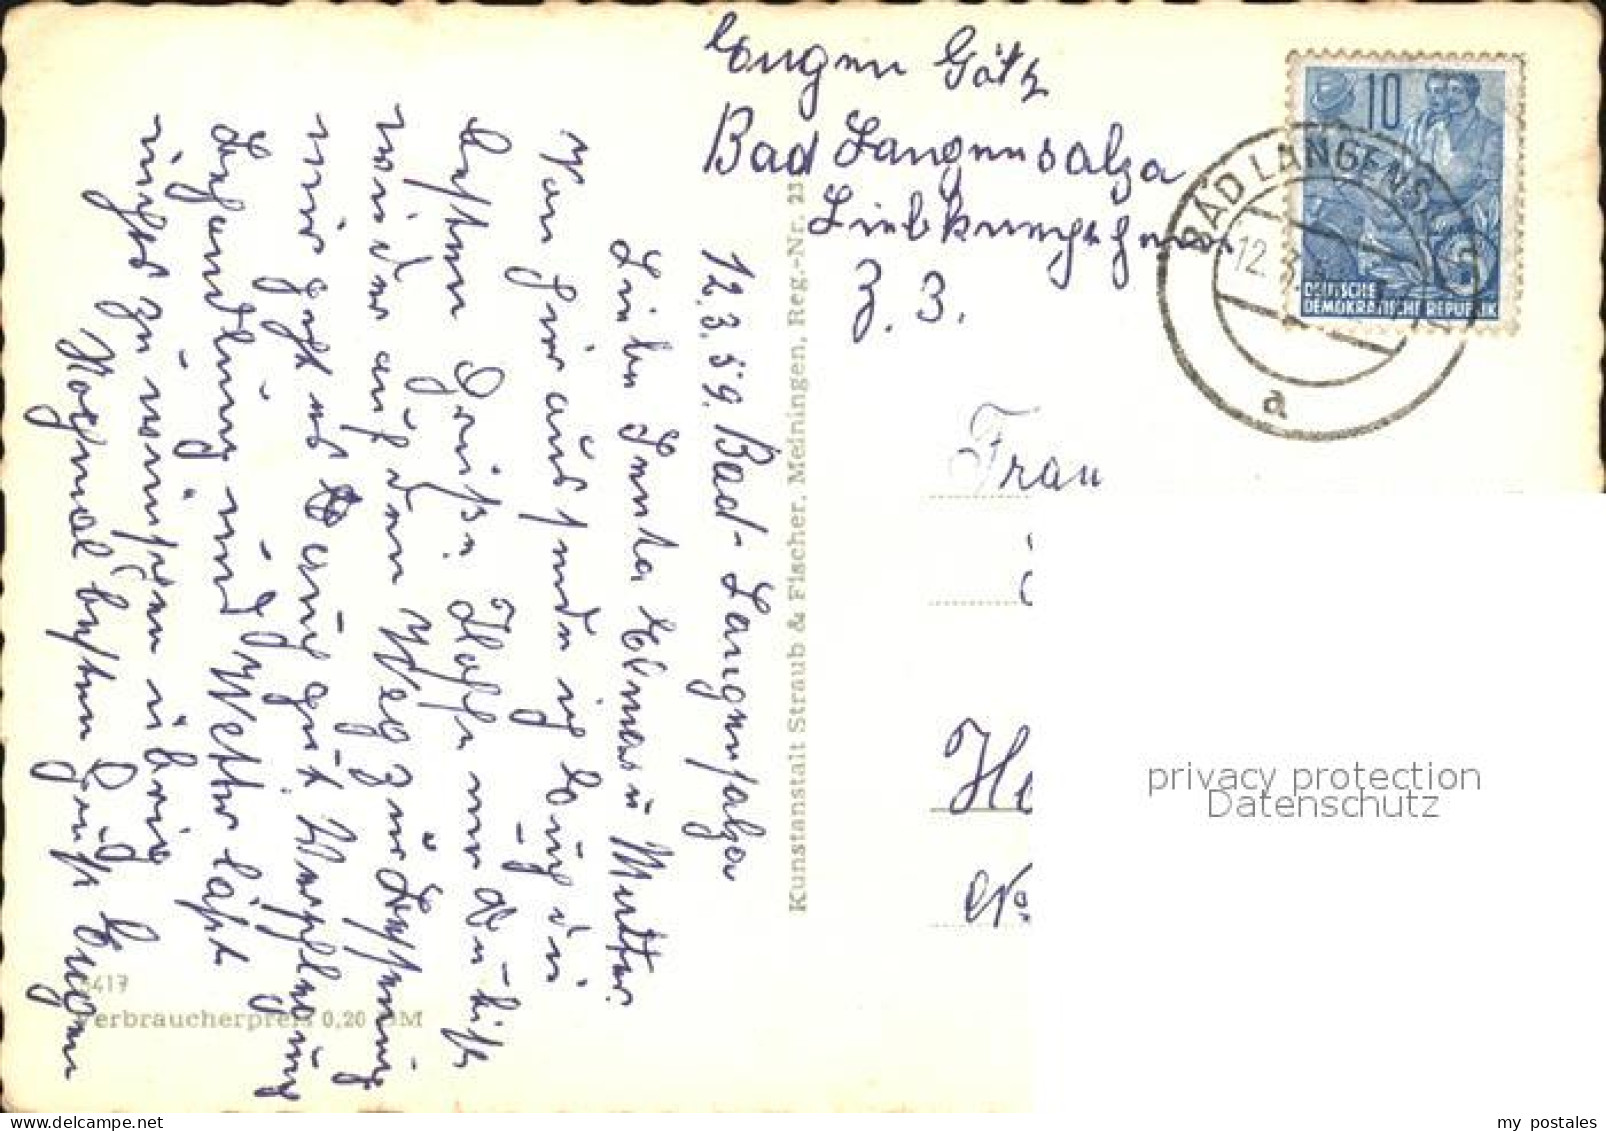 Eugen Götz
Bad Langensalza
Z. 3.
10
DEUTSCHE
DEMOKRATISCHE REPUBLIK
BAD LANGENSALZA
12. 3.
a
12.3.59. Bad-Langensalza
Liebe Tante Elma u Mutter.
Von hier aus sende ich Euch die
besten Grüße. Hoffe Du bist
wieder auf dem Weg zur Besserung
mir geht es auch gut. Verpflegung
Behandlung und Wetter läßt
nichts zu wünschen übrig
Nochmal besten Gruß Eugen
Frau
No.
Kunstanstalt Straub & Fischer, Meiningen, Reg.-Nr. 23
6417
Verbraucherpreis 0,20 DM
privacy protection
Datenschutz
my postales